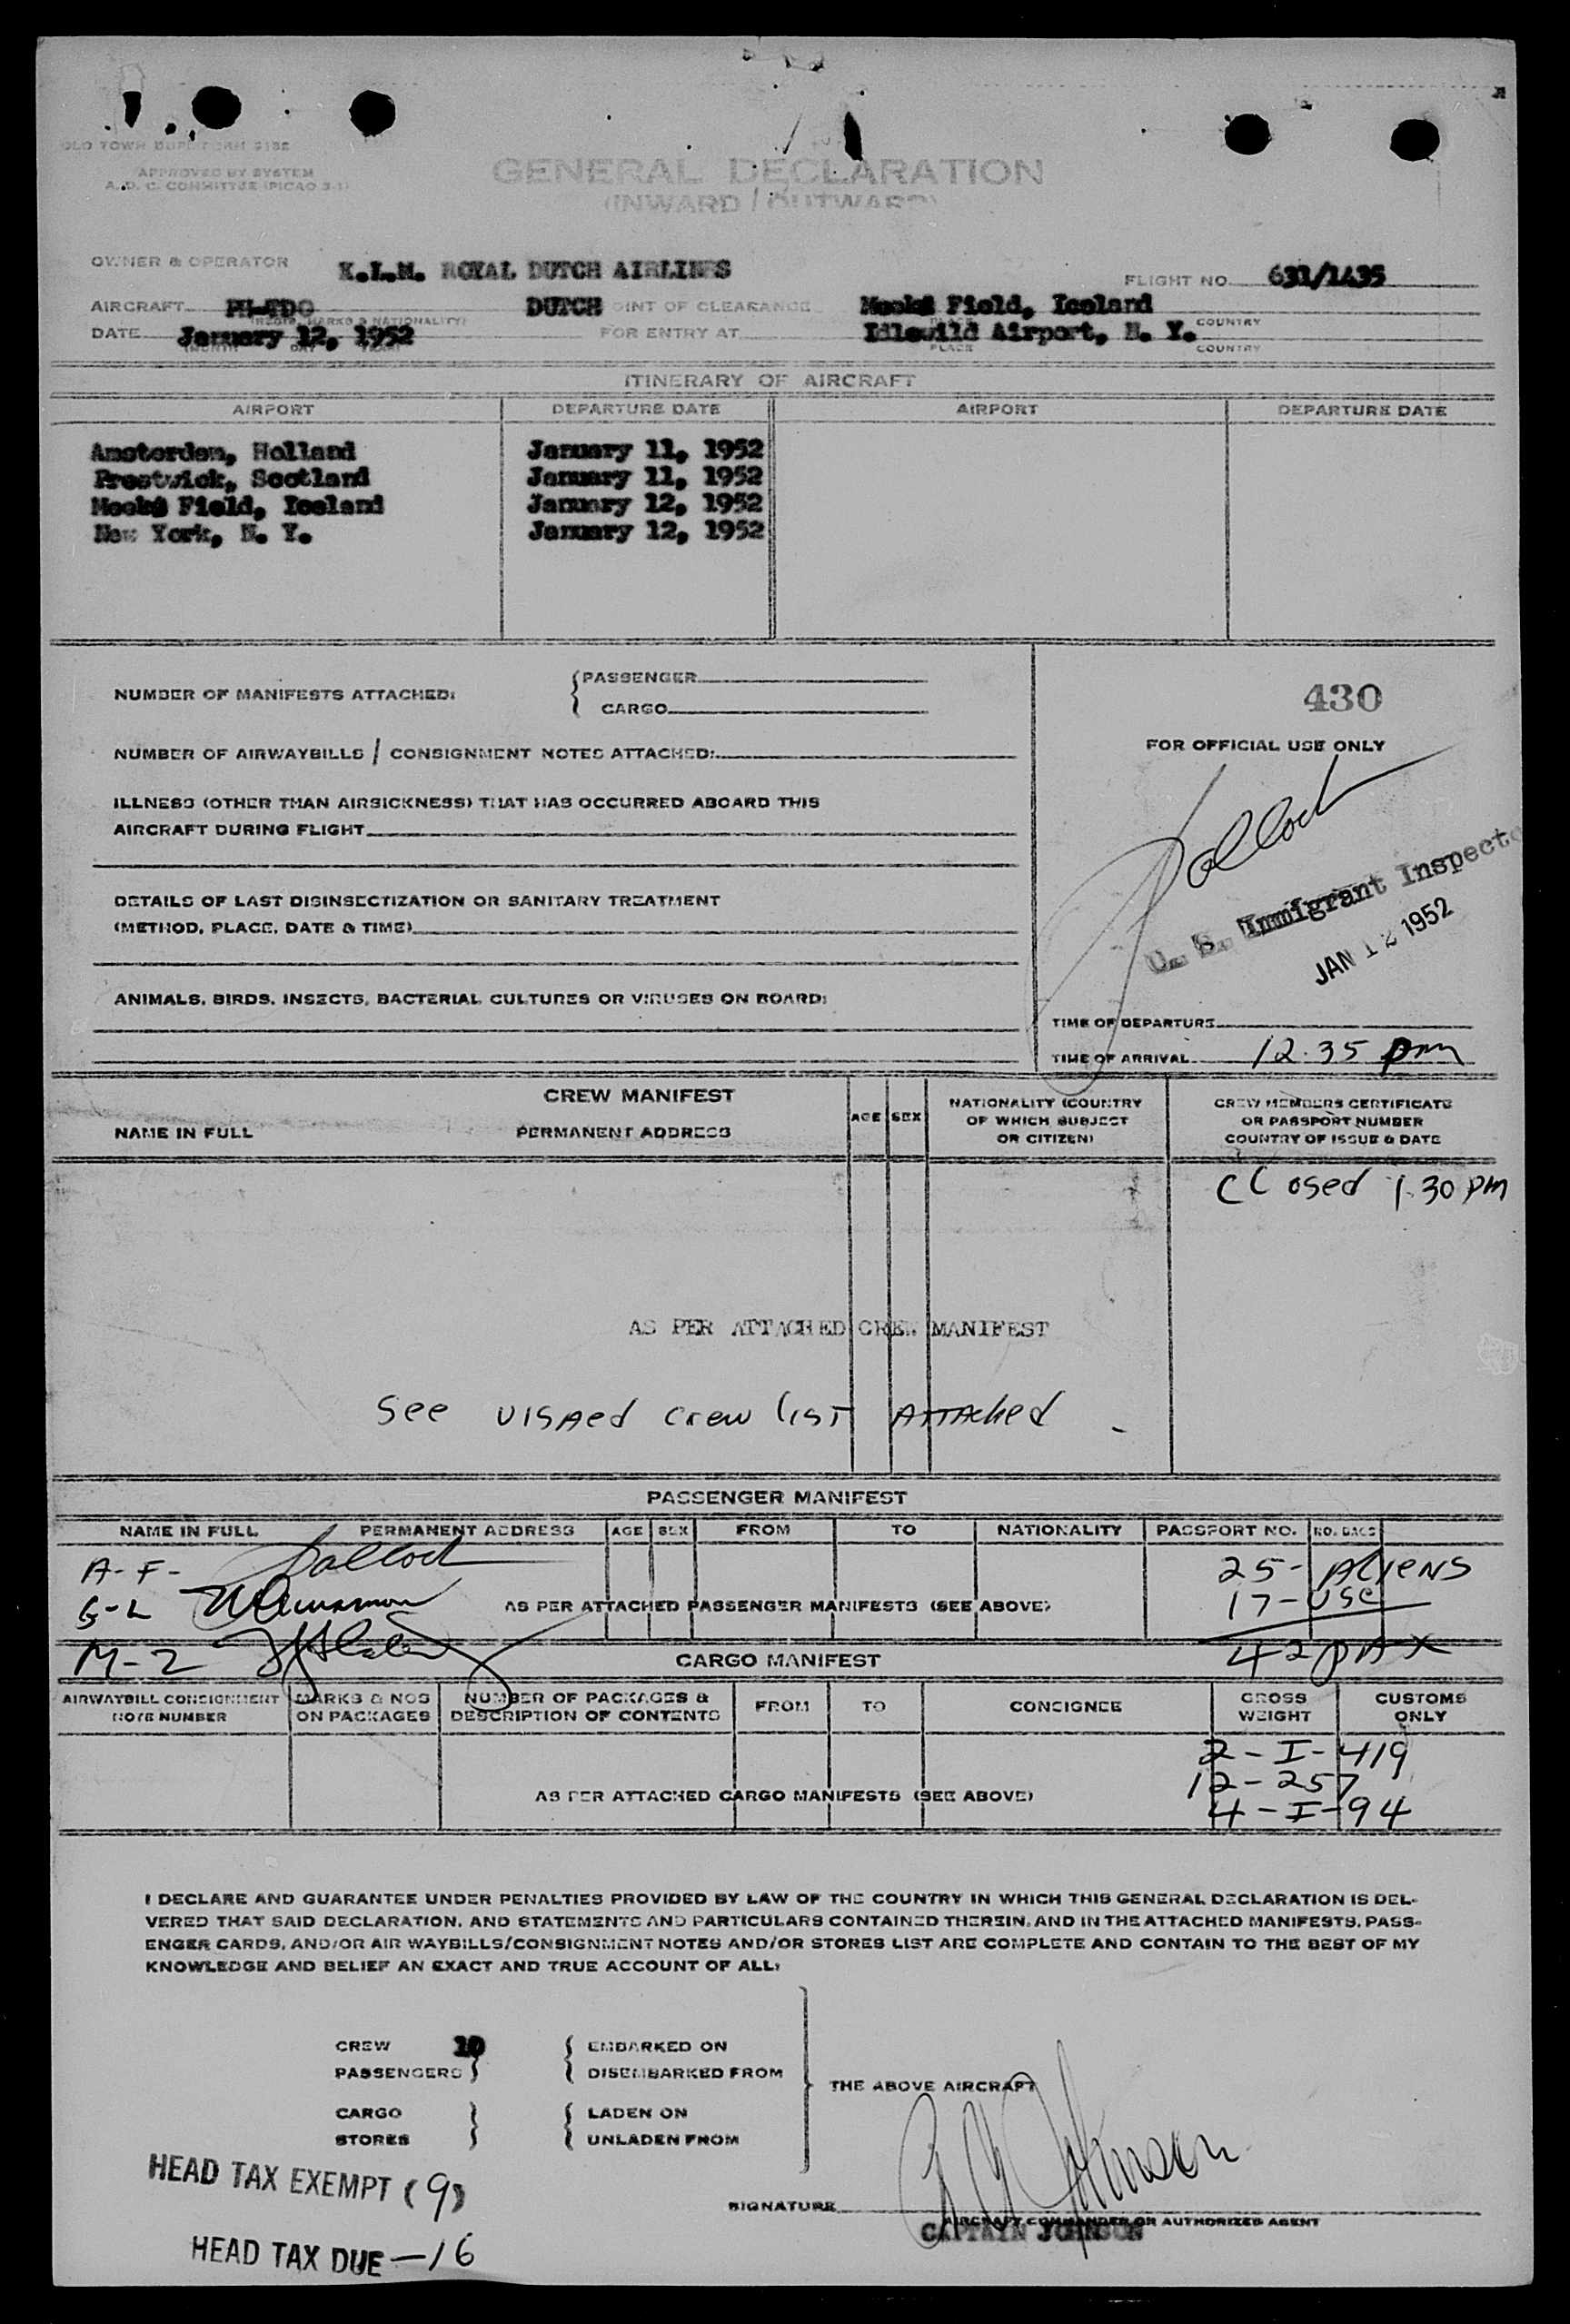 OLD TOWN
APPROVED BY SYSTEM
A. D. C. COMMITTEE (PICAO 3-1)
GENERAL DECLARATION
(INWARD / OUTWARD)
OWNER & OPERATOR K.L.M. ROYAL DUTCH AIRLINES
FLIGHT NO. 631/1435
AIRCRAFT PH-TDO DUTCH POINT OF CLEARANCE Meeks Field, Iceland
(REGIS. MARKS & NATIONALITY) PLACE COUNTRY
DATE January 12, 1952 FOR ENTRY AT Idlewild Airport, N. Y.
(MONTH DAY YEAR) PLACE COUNTRY
ITINERARY OF AIRCRAFT
AIRPORT DEPARTURE DATE AIRPORT DEPARTURE DATE
Amsterdam, Holland January 11, 1952
Prestwick, Scotland January 11, 1952
Meeks Field, Iceland January 12, 1952
New York, N. Y. January 12, 1952
NUMBER OF MANIFESTS ATTACHED: PASSENGER
CARGO
430
NUMBER OF AIRWAYBILLS / CONSIGNMENT NOTES ATTACHED:
FOR OFFICIAL USE ONLY
ILLNESS (OTHER THAN AIRSICKNESS) THAT HAS OCCURRED ABOARD THIS
AIRCRAFT DURING FLIGHT
Pollock
U. S. Immigrant Inspecto
JAN 12 1952
DETAILS OF LAST DISINSECTIZATION OR SANITARY TREATMENT
(METHOD, PLACE, DATE & TIME)
ANIMALS, BIRDS, INSECTS, BACTERIAL CULTURES OR VIRUSES ON BOARD:
TIME OF DEPARTURE
TIME OF ARRIVAL 12.35 pm
CREW MANIFEST
NAME IN FULL PERMANENT ADDRESS AGE SEX NATIONALITY (COUNTRY OF WHICH SUBJECT OR CITIZEN) CREW MEMBERS CERTIFICATE OR PASSPORT NUMBER COUNTRY OF ISSUE & DATE
CLosed 1.30 pm
AS PER ATTACHED CREW MANIFEST
See VISAed crew list ATTAched
PASSENGER MANIFEST
NAME IN FULL PERMANENT ADDRESS AGE SEX FROM TO NATIONALITY PASSPORT NO. NO. BAGS
A-F- Pollock 25- ALIENS
G-L AS PER ATTACHED PASSENGER MANIFESTS (SEE ABOVE) 17-USC
M-Z 42 PAX
CARGO MANIFEST
AIRWAYBILL CONSIGNMENT NOTE NUMBER MARKS & NOS ON PACKAGES NUMBER OF PACKAGES & DESCRIPTION OF CONTENTS FROM TO CONSIGNEE GROSS WEIGHT CUSTOMS ONLY
2-I-419
12-257
AS PER ATTACHED CARGO MANIFESTS (SEE ABOVE)
4-I-94
I DECLARE AND GUARANTEE UNDER PENALTIES PROVIDED BY LAW OF THE COUNTRY IN WHICH THIS GENERAL DECLARATION IS DEL-
VERED THAT SAID DECLARATION, AND STATEMENTS AND PARTICULARS CONTAINED THEREIN, AND IN THE ATTACHED MANIFESTS, PASS-
ENGER CARDS, AND/OR AIR WAYBILLS/CONSIGNMENT NOTES AND/OR STORES LIST ARE COMPLETE AND CONTAIN TO THE BEST OF MY
KNOWLEDGE AND BELIEF AN EXACT AND TRUE ACCOUNT OF ALL:
CREW 10 EMBARKED ON
PASSENGERS DISEMBARKED FROM
THE ABOVE AIRCRAFT
CARGO LADEN ON
STORES UNLADEN FROM
HEAD TAX EXEMPT (9)
SIGNATURE Johnson
AIRCRAFT COMMANDER OR AUTHORIZED AGENT
CAPTAIN JOHNSON
HEAD TAX DUE -16